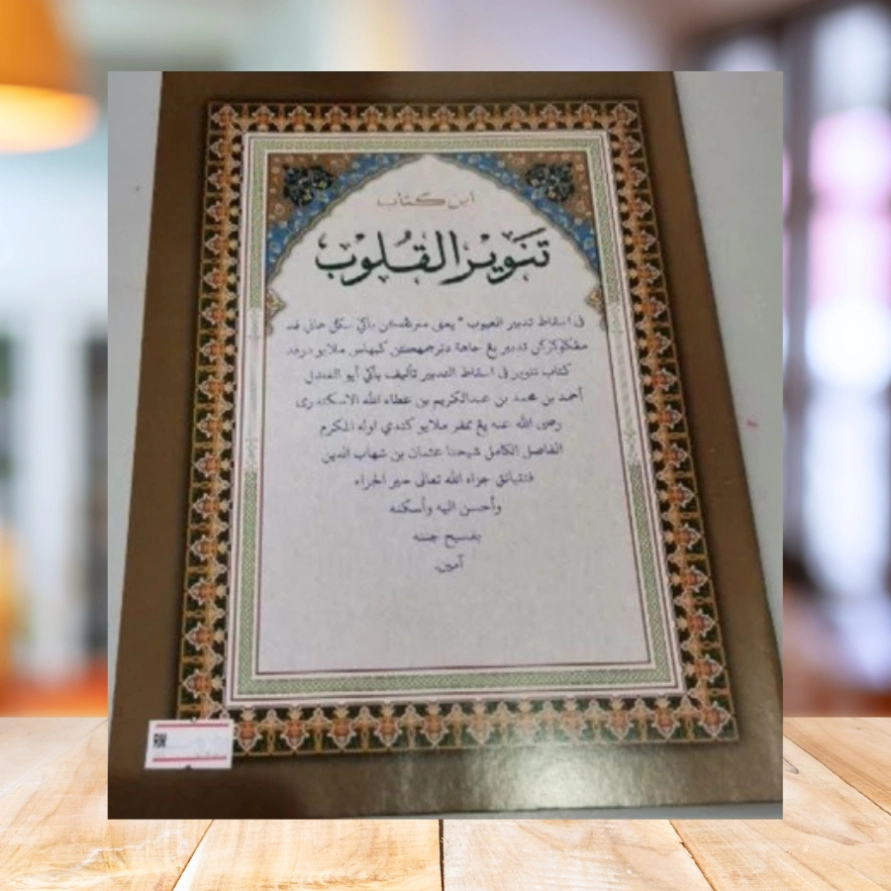 اين كتاب
تنوير القلوب
في اسقاط تدبير العيوب * يعني منرڠكن باݢي سݢل هاتي فد
مڠݢوݢركن تدبير يڠ جاهة دترجمهكن كبهاس ملايو درفد
كتاب تنوير في اسقاط التدبير تأليف باݢي أبو الفضل
أحمد بن محمد بن عبدالكريم بن عطاء الله الاسكندرى
رضى الله عنه يڠ ملايو كندي اوله المكرم
الفاضل الكامل شيخنا عثمان بن شهاب الدين
فنتيانق جزاه الله تعالى خير الجزاء
وأحسن اليه وأسكنه
بفسيح جنته
آمين.
RM